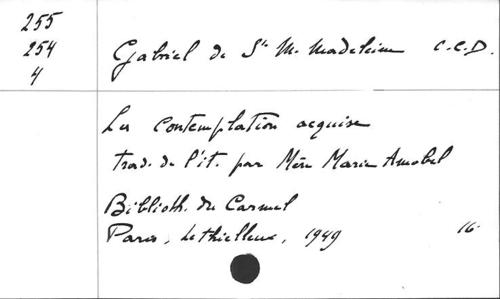 255
254
4
Gabriel de Ste M. Madeleine C.C.D.
La contemplation acquise
trad. de l'it. par Mère Marie Amabel
Biblioth. du Carmel
Paris, Lethielleux, 1949 16-